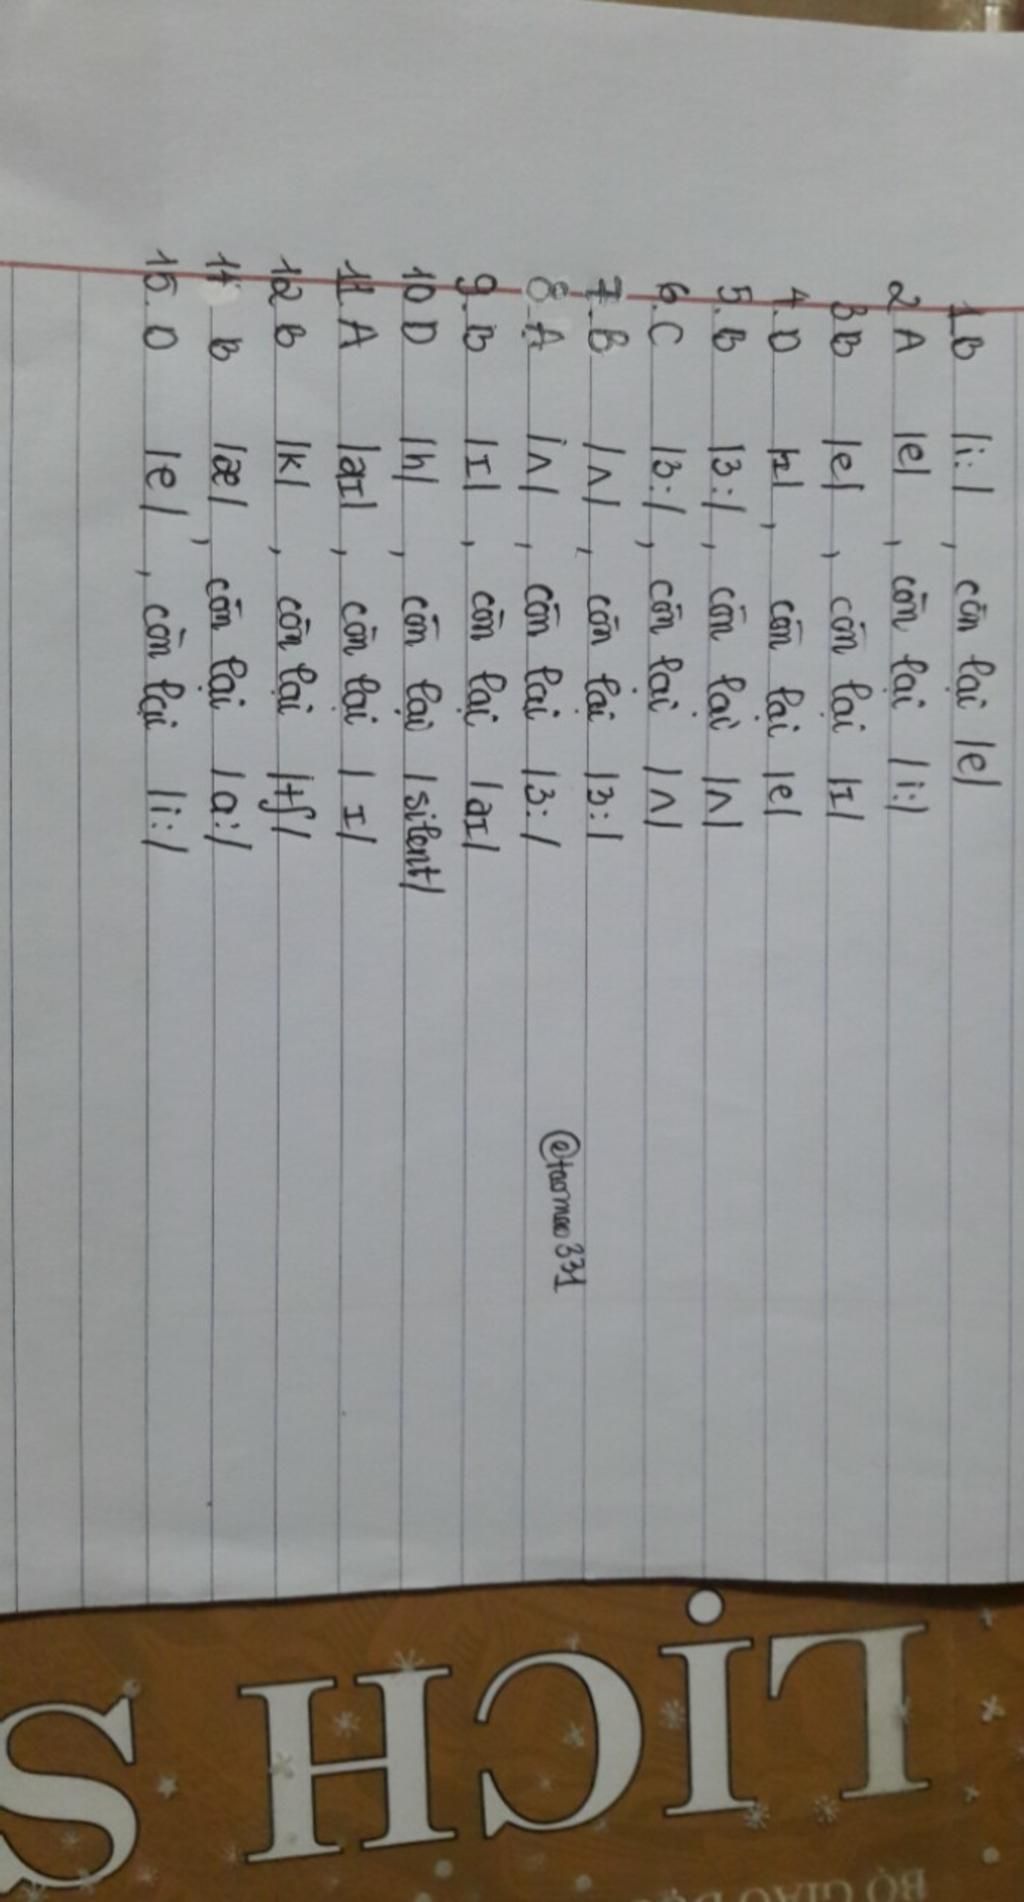 1. B /i:/, còn lại /e/
2 A /e/, còn lại /i:/
3 B /e/, còn lại /ɪ/
4. D /ɪ/, còn lại /e/
5. B /ɜ:/, còn lại /ʌ/
6. C /ɜ:/, còn lại /ʌ/
7. B /ʌ/, còn lại /ɜ:/
8. A /ʌ/, còn lại /ɜ:/
9. B /ɪ/, còn lại /aɪ/
10 D /h/, còn lại /silent/
11. A /aɪ/, còn lại /ɪ/
12 B /k/, còn lại /tʃ/
14 B /æ/, còn lại /a:/
15. D /e/, còn lại /i:/
@taomao331
LỊCH S
BỘ GIÁO DỤC